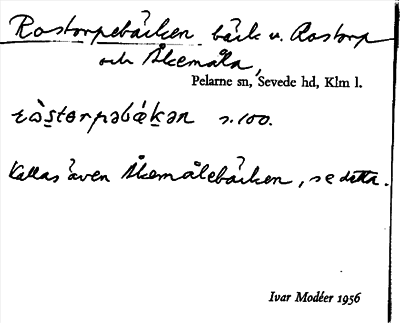 Rostorpebäcken bäck v. Rostorp
och Åkemåla,
Pelarne sn, Sevede hd, Klm l.
s. 100.
Kallas även Åkemålebäcken, se detta.
Ivar Modéer 1956